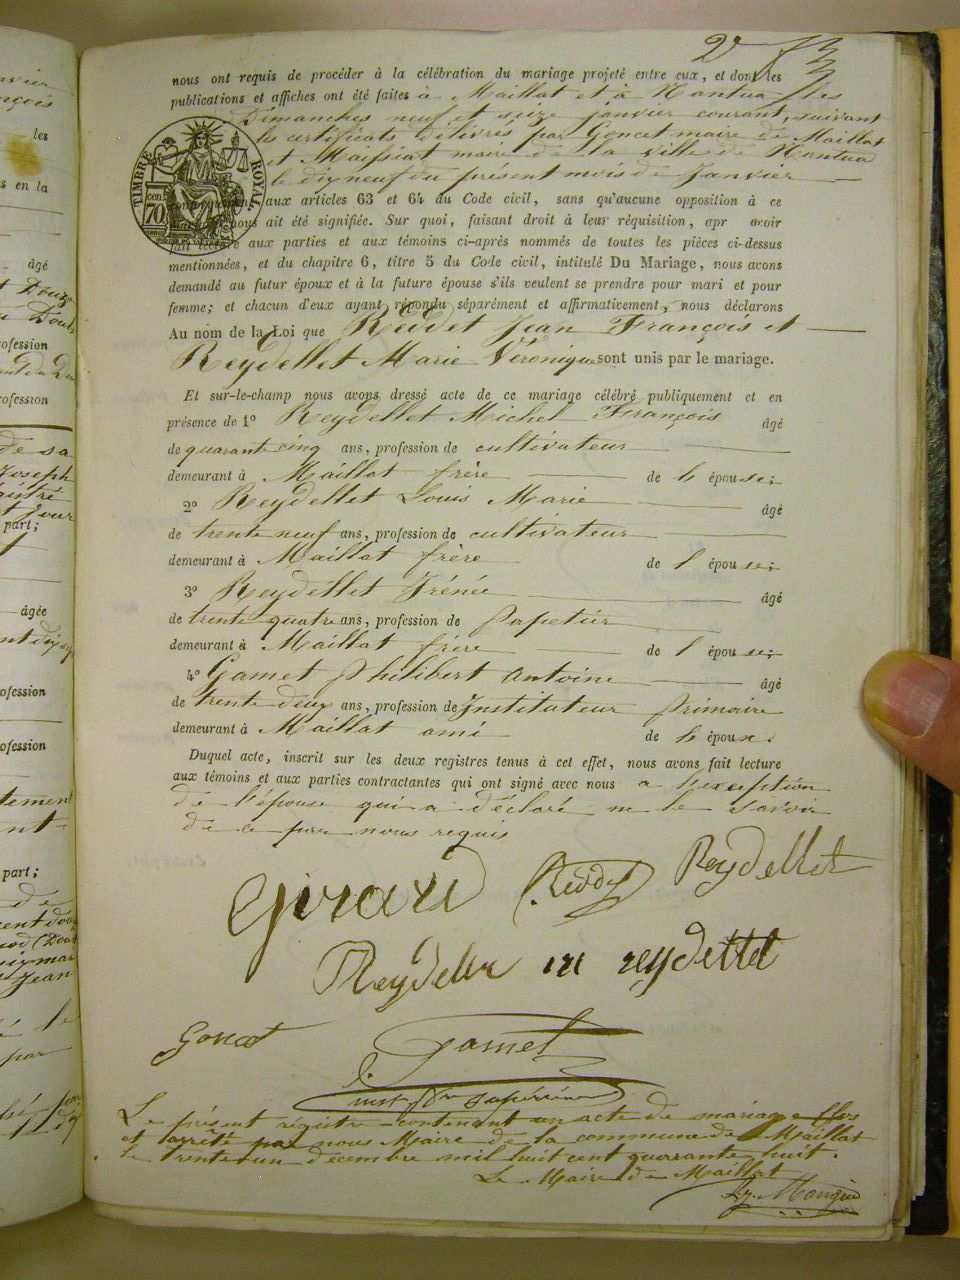 2e
nous ont requis de procéder à la célébration du mariage projeté entre eux, et dont les
publications et affiches ont été faites à Maillat et à Nantua les
dimanches neuf et seize janvier courant, suivant
les certificats délivrés par Goncet maire de Maillat
et Maissiat maire de la ville de Nantua
le dix neuf du présent mois de Janvier
TIMBRE ROYAL
cen. 70
aux articles 63 et 64 du Code civil, sans qu'aucune opposition à ce
nous ait été signifiée. Sur quoi, faisant droit à leur réquisition, apr avoir
fait lecture aux parties et aux témoins ci-après nommés de toutes les pièces ci-dessus
mentionnées, et du chapitre 6, titre 5 du Code civil, intitulé Du Mariage, nous avons
demandé au futur époux et à la future épouse s'ils veulent se prendre pour mari et pour
femme; et chacun d'eux ayant répondu séparément et affirmativement, nous déclarons
Au nom de la Loi que Reddet Jean François et
Reydellet Marie Véronique sont unis par le mariage.
Et sur-le-champ nous avons dressé acte de ce mariage célébré publiquement et en
présence de 1o Reydellet Michel François âgé
de quarante cinq ans, profession de cultivateur
demeurant à Maillat frère de l épouse;
2o Reydellet Louis Marie âgé
de trente neuf ans, profession de cultivateur
demeurant à Maillat frère de l épouse;
3o Reydellet Irénée âgé
de trente quatre ans, profession de Papetier
demeurant à Maillat frère de l épouse;
4o Gamet Philibert Antoine âgé
de trente deux ans, profession de Instituteur primaire
demeurant à Maillat ami de l époux.
Duquel acte, inscrit sur les deux registres tenus à cet effet, nous avons fait lecture
aux témoins et aux parties contractantes qui ont signé avec nous a l'exception
de l'épouse qui a déclaré ne le savoir
de ce par nous requis
Girard Reddet Reydellet
Reydellet reydellet
Goncet Gamet
inst supérieur
Le présent registre contenant un acte de mariage clos
et arrêté par nous Maire de la commune de Maillat
le trente un décembre mil huit cent quarante huit.
Le Maire de Maillat